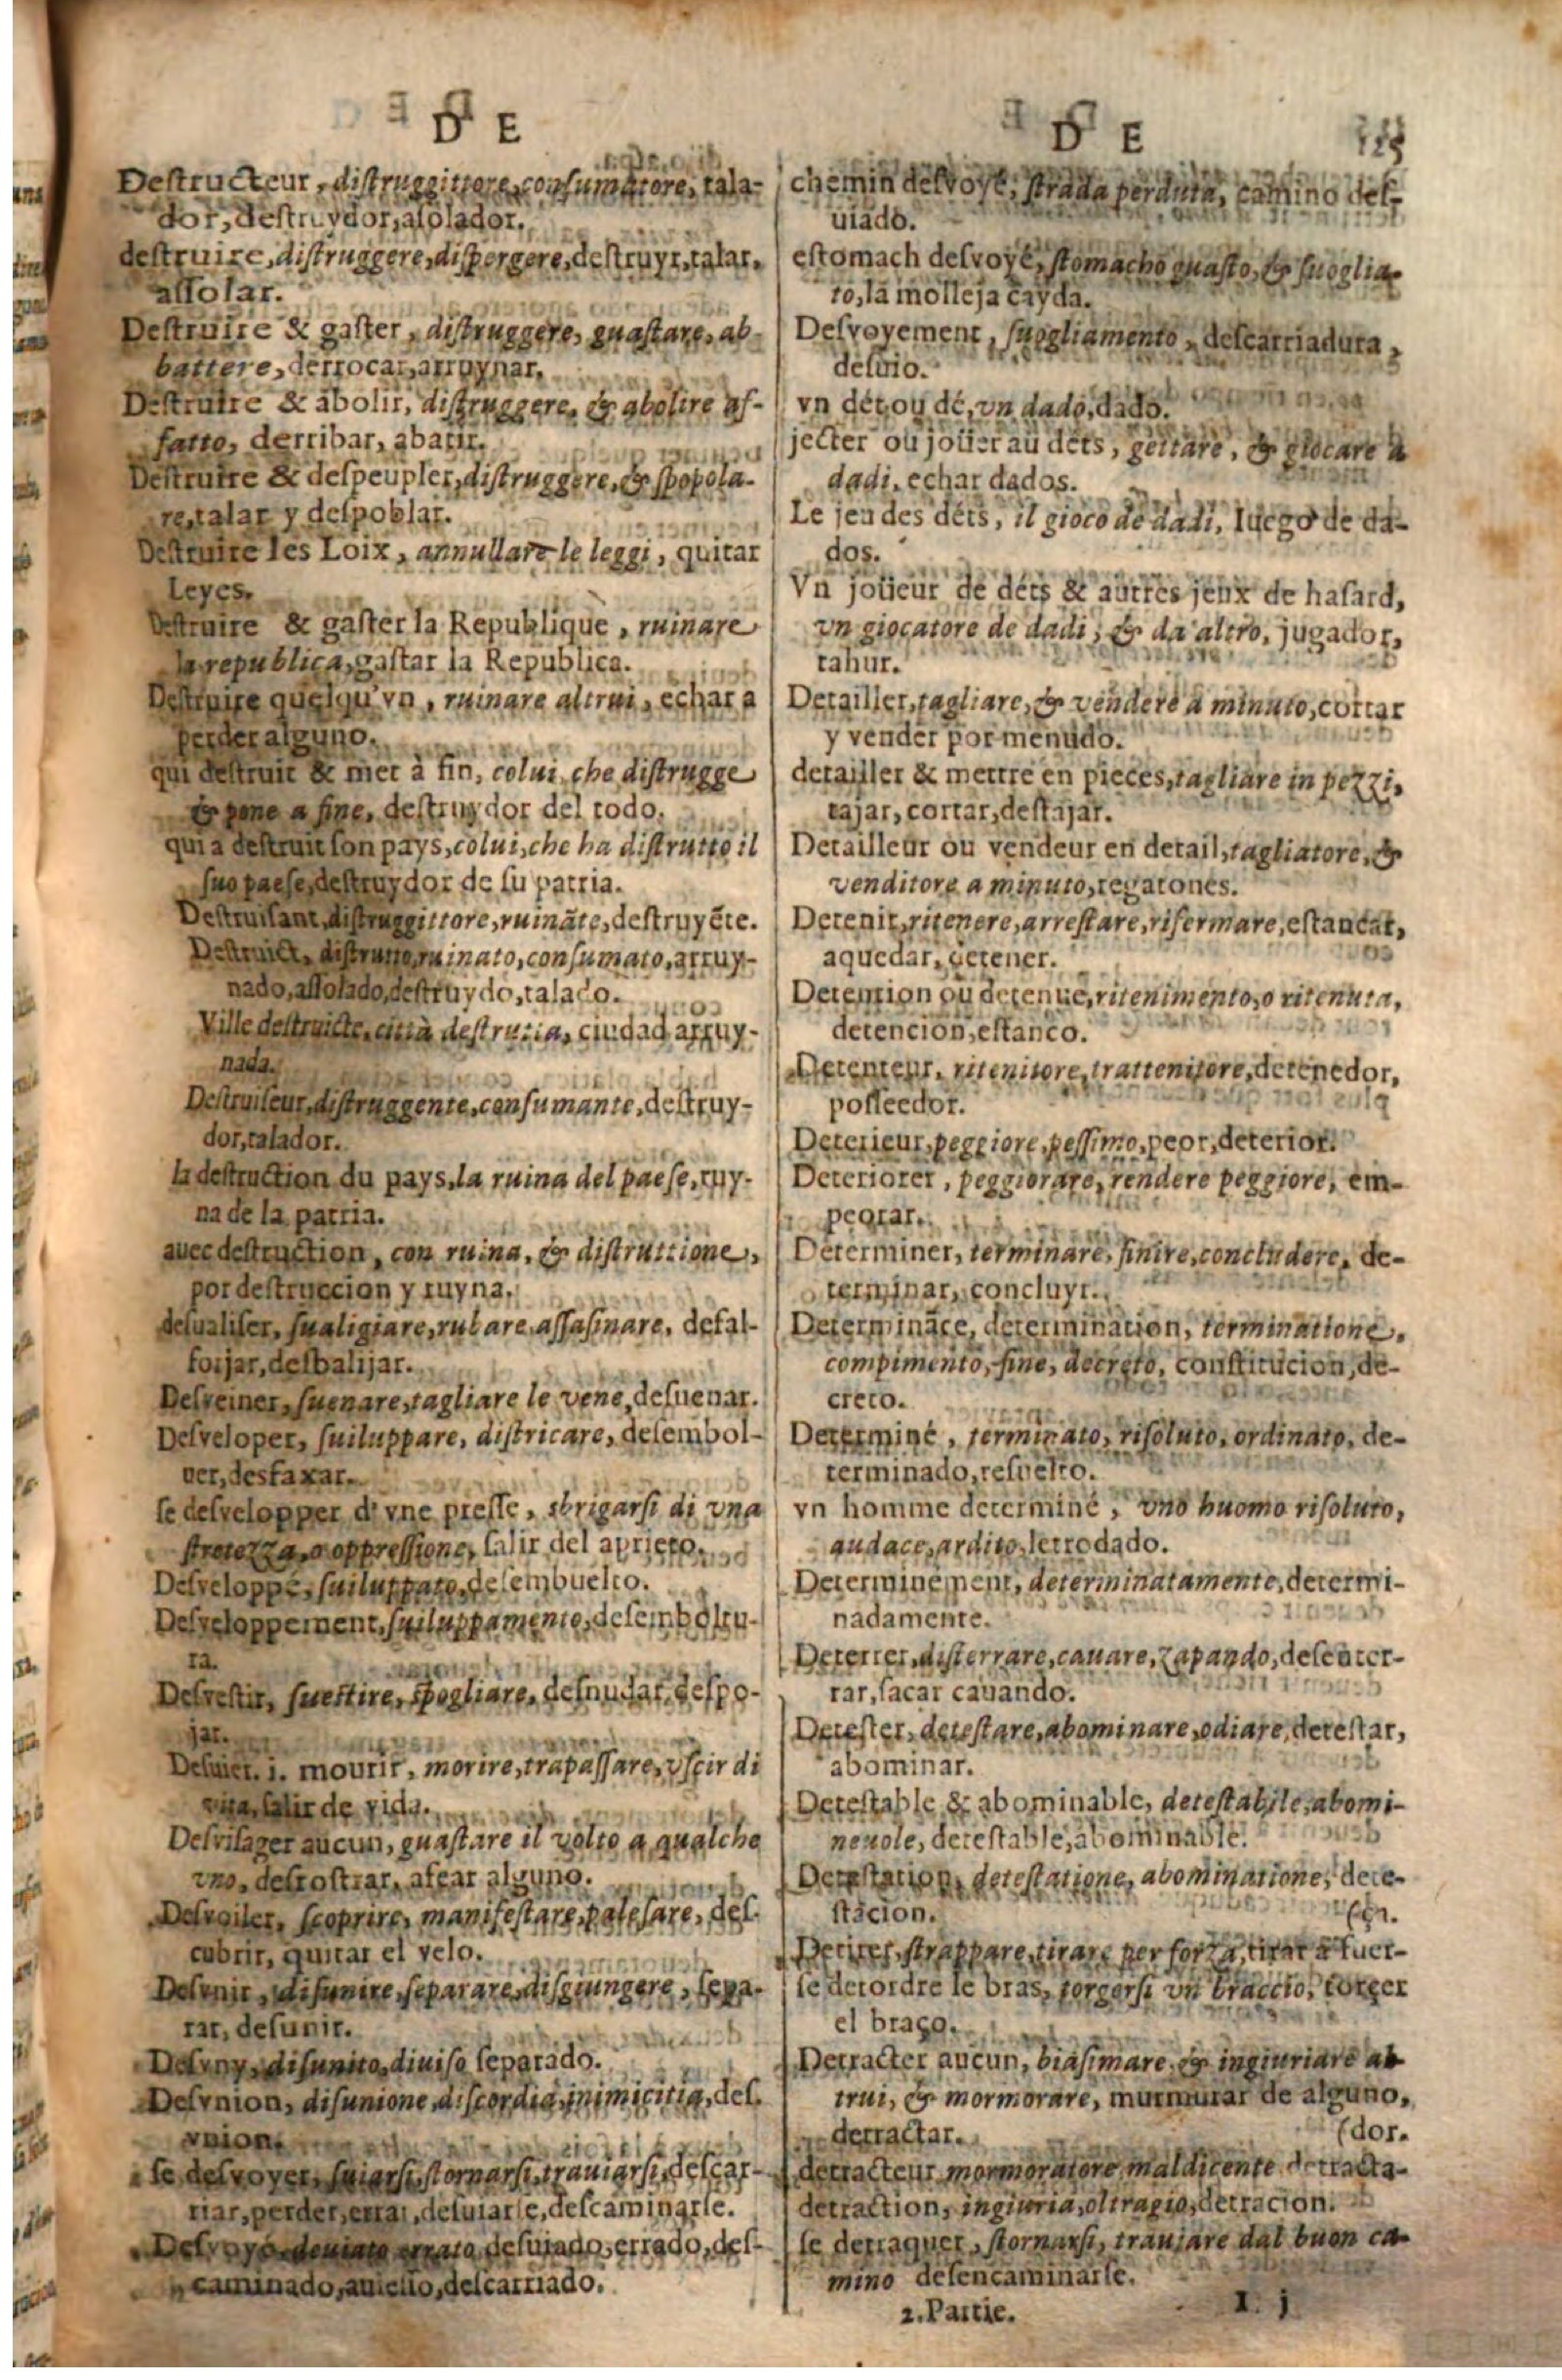 D E
Destructeur, distruggittore, consumatore, tala-
dor, destruydor, asolador.
destruire, distruggere, dispergere, destruyr, talar,
assolar.
Destruire & gaster, distruggere, guastare, ab-
battere, derrocar, arruynar.
Destruire & abolir, distruggere, & abolire af-
fatto, derribar, abatir.
Destruire & despeupler, distruggere, & spopola-
re, talar y despoblar.
Destruire les Loix, annullare le leggi, quitar
Leyes.
Destruire & gaster la Republique, ruinare
la republica, gastar la Republica.
Destruire quelqu'vn, ruinare altrui, echar a
perder alguno.
qui destruit & met à fin, colui, che distrugge
& pone a fine, destruydor del todo.
qui a destruit son pays, colui, che ha distrutto il
suo paese, destruydor de su patria.
Destruisant, distruggittore, ruināte, destruyēte.
Destruict, distrutto, ruinato, consumato, arruy-
nado, assolado, destruydo, talado.
Ville destruicte, città destrutta, ciudad arruy-
nada.
Destruiseur, distruggente, consumante, destruy-
dor, talador.
la destruction du pays, la ruina del paese, ruy-
na de la patria.
auec destruction, con ruina, & distruttione,
por destruccion y ruyna.
desualiser, sualigiare, rubare, assasinare, desal-
forjar, desbalijar.
Desveiner, suenare, tagliare le vene, desuenar.
Desveloper, suiluppare, districare, desembol-
uer, desfaxar.
se desvelopper d'vne presse, sbrigarsi di vna
stretezza, o oppressione, salir del aprieto.
Desveloppé, suiluppato, desembuelto.
Desveloppement, suiluppamento, desemboltu-
ra.
Desvestir, suestire, spogliare, desnudar, despo-
jar.
Desuier. i. mourir, morire, trapassare, vscir di
vita, salir de vida.
Desvisager aucun, guastare il volto a qualche
vno, desrostrar, afear alguno.
Desvoiler, scoprire, manifestare, palesare, des-
cubrir, quitar el velo.
Desvnir, disunire, separare, disgiungere, sepa-
rar, desunir.
Desvny, disunito, diuiso separado.
Desvnion, disunione, discordia, inimicitia, des-
vnion.
se desvoyer, suiarsi, stornarsi, trauiarsi, descar-
riar, perder, errar, desuiarse, descaminarse.
Desvoyé, deuiato errato desuiado, errado, des-
caminado, auieſſo, descarriado.
D E
115
chemin desvoyé, strada perduta, camino des-
uiado.
estomach desvoyé, stomacho guasto, & suoglia-
to, la molleja cayda.
Desvoyement, suogliamento, descarriadura,
desuio.
vn dét, ou dé, vn dado, dado.
jecter ou joüer au déts, gettare, & giocare a
dadi, echar dados.
Le jeu des déts, il gioco de dadi, Iuego de da-
dos.
Vn joüeur de déts & autres jeux de hasard,
vn giocatore de dadi, & da altro, jugador,
tahur.
Detailler, tagliare, & vendere a minuto, cortar
y vender por menudo.
detailler & mettre en pieces, tagliare in pezzi,
tajar, cortar, destajar.
Detailleur ou vendeur en detail, tagliatore, &
venditore a minuto, regatones.
Detenir, ritenere, arrestare, risermare, estancar,
aquedar, detener.
Detention ou detenuë, ritenimento, o ritenuta,
detencion, estanco.
Detenteur, ritenitore, trattenitore, detenedor,
posseedor.
Deterieur, peggiore, pessimo, peor, deterior.
Deteriorer, peggiorare, rendere peggiore, em-
peorar.
Determiner, terminare, finire, concludere, de-
terminar, concluyr.
Determināce, determination, terminatione,
compimento, fine, decreto, constitucion, de-
creto.
Determiné, terminato, risoluto, ordinato, de-
terminado, resuelto.
vn homme determiné, vno huomo risoluto,
audace, ardito, letrodado.
Determinément, determinatamente, determi-
nadamente.
Deterrer, disterrare, cauare, zapando, desenter-
rar, sacar cauando.
Detester, detestare, abominare, odiare, detestar,
abominar.
Detestable & abominable, detestabile, abomi-
neuole, detestable, abominable.
Detestation, detestatione, abominatione, dete-
stacion. (ça.
Detirer, strappare, tirare per forza, tirar a fuer-
se detordre le bras, torgersi vn braccio, torçer
el braço.
Detracter aucun, biasimare & ingiuriare al-
trui, & mormorare, murmurar de alguno,
detractar. (dor.
detracteur mormoratore maldicente detracta-
detraction, ingiuria, oltragio, detracion.
se detraquer, stornarsi, trauiare dal buon ca-
mino desencaminarse.
2. Partie. I j